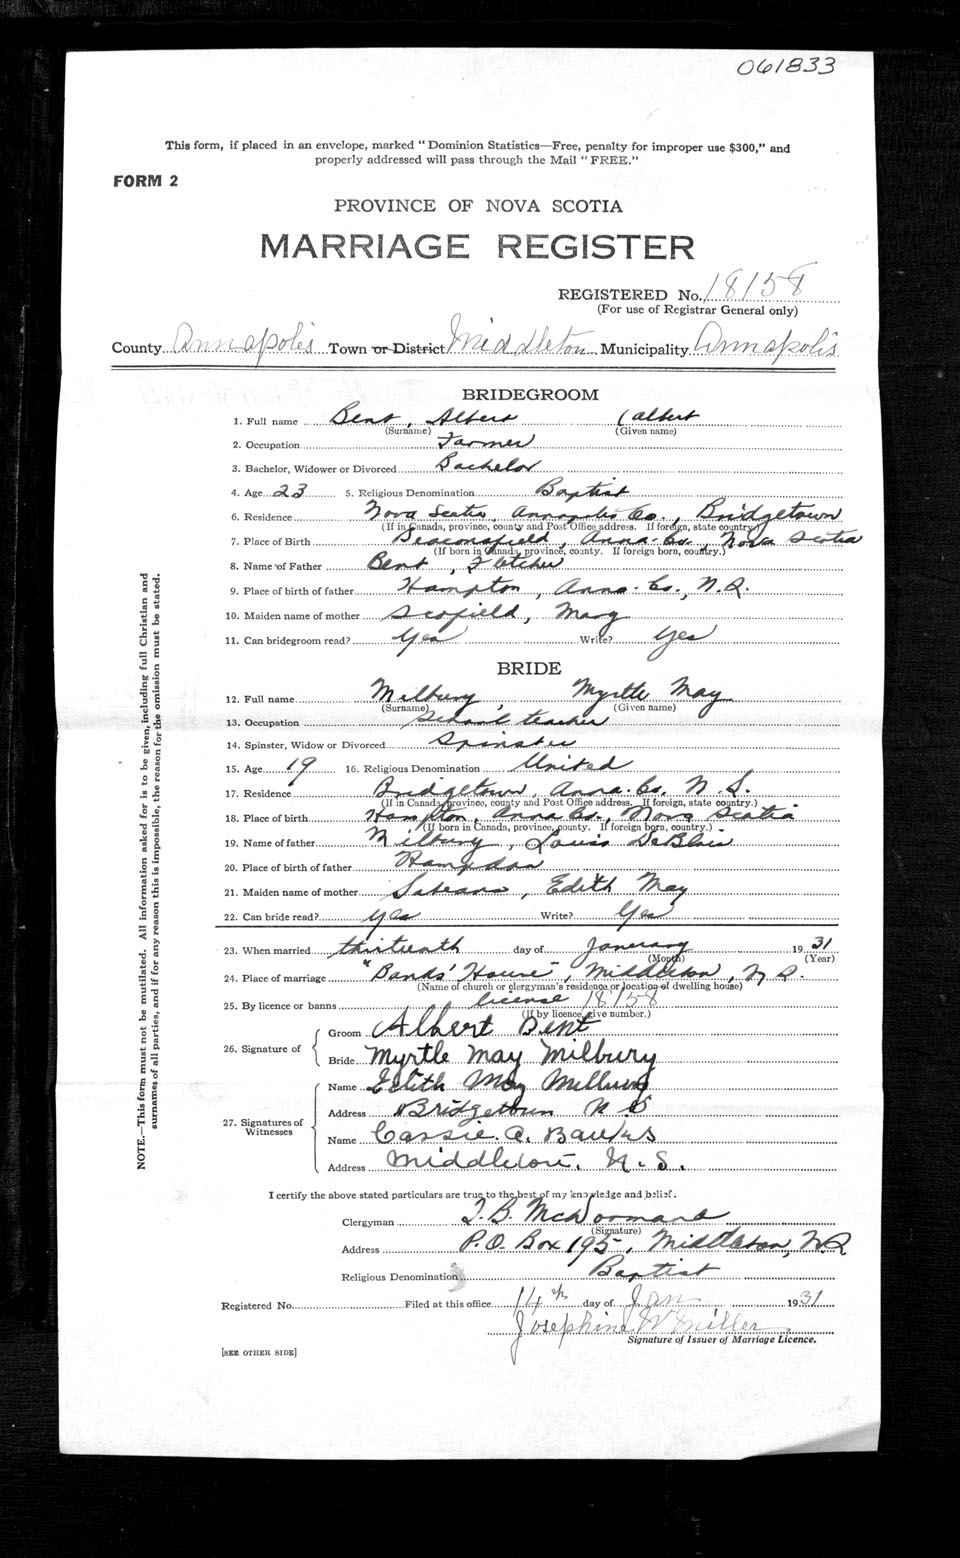 061833
This form, if placed in an envelope, marked "Dominion Statistics—Free, penalty for improper use $300," and
properly addressed will pass through the Mail "FREE."
FORM 2
PROVINCE OF NOVA SCOTIA
MARRIAGE REGISTER
REGISTERED No. 18158
(For use of Registrar General only)
County Annapolis Town or District Middleton Municipality Annapolis
BRIDEGROOM
1. Full name Bent, Albert (albert
(Surname) (Given name)
2. Occupation Farmer
3. Bachelor, Widower or Divorced Bachelor
4. Age 23 5. Religious Denomination Baptist
6. Residence Nova Scotia, Annapolis Co., Bridgetown
(If in Canada, province, county and Post Office address. If foreign, state country.)
7. Place of Birth Beaconsfield, Anna. Co., Nova Scotia
(If born in Canada, province, county. If foreign born, country.)
8. Name of Father Bent, Fletcher
9. Place of birth of father Hampton, Anna. Co., N.S.
10. Maiden name of mother Scofield, Mary
11. Can bridegroom read? Yes Write? Yes
BRIDE
12. Full name Milbury, Myrtle May
(Surname) (Given name)
13. Occupation School teacher
14. Spinster, Widow or Divorced Spinster
15. Age 19 16. Religious Denomination United
17. Residence Bridgetown, Anna. Co. N.S.
(If in Canada, province, county and Post Office address. If foreign, state country.)
18. Place of birth Hampton, Anna Co., Nova Scotia
(If born in Canada, province, county. If foreign born, country.)
19. Name of father Milbury, Louis DeBlois
20. Place of birth of father
21. Maiden name of mother Edith May
22. Can bride read? yes Write? Yes
23. When married thirteenth day of Janerary 1931
(Month) (Year)
24. Place of marriage "House", Middleton, N.S.
(Name of church or clergyman's residence or location of dwelling house)
25. By licence or banns license 18158
(If by licence, give number.)
26. Signature of Groom Albert Bent
Bride Myrtle May Milbury
27. Signatures of Witnesses Name Edith May Milbury
Address Bridgetown N S
Name Cassie. A.
Address Middleton. N.S.
I certify the above stated particulars are true to the best of my knowledge and belief.
Clergyman
(Signature)
Address P.O. Box 195, Middleton, N.S
Religious Denomination Baptist
Registered No. Filed at this office 14th day of Jan 1931
Josephine W Miller
Signature of Issuer of Marriage Licence.
[SEE OTHER SIDE]
NOTE.—This form must not be mutilated. All information asked for is to be given, including full Christian and
surnames of all parties, and if for any reason this is impossible, the reason for the omission must be stated.